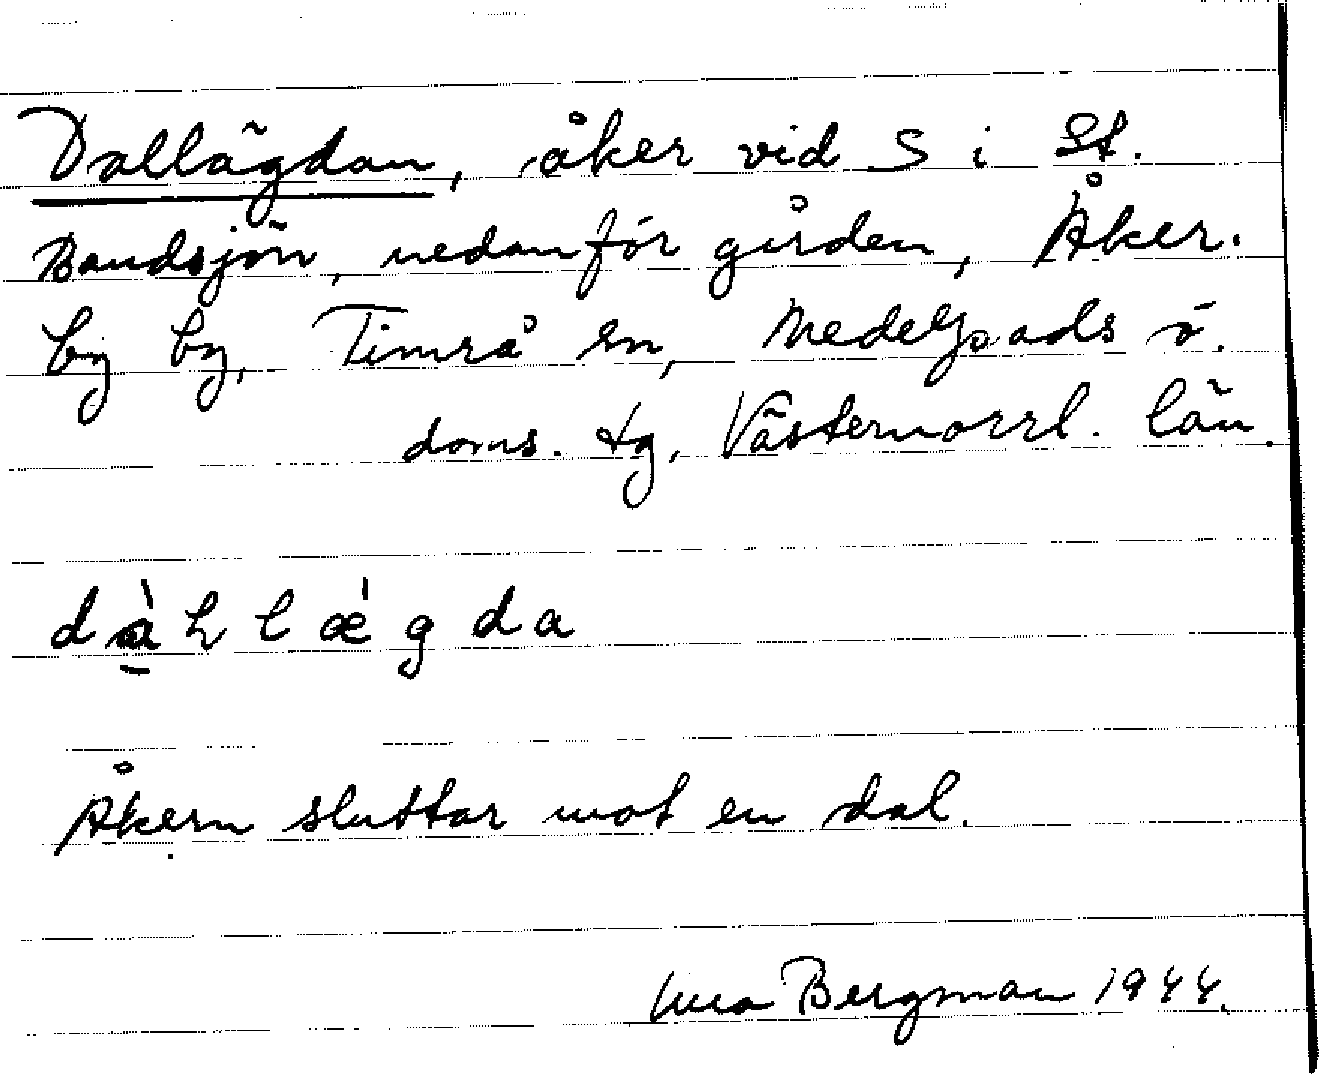 Dallägdan, åker vid S i St.
Bandsjön, nedanför gården, Åker-
by by, Timrå sn, Medelpads ö.
doms. tg, Västernorrl. län.
dàllæ´gda
Åkern sluttar mot en dal.
Bergman 1944.